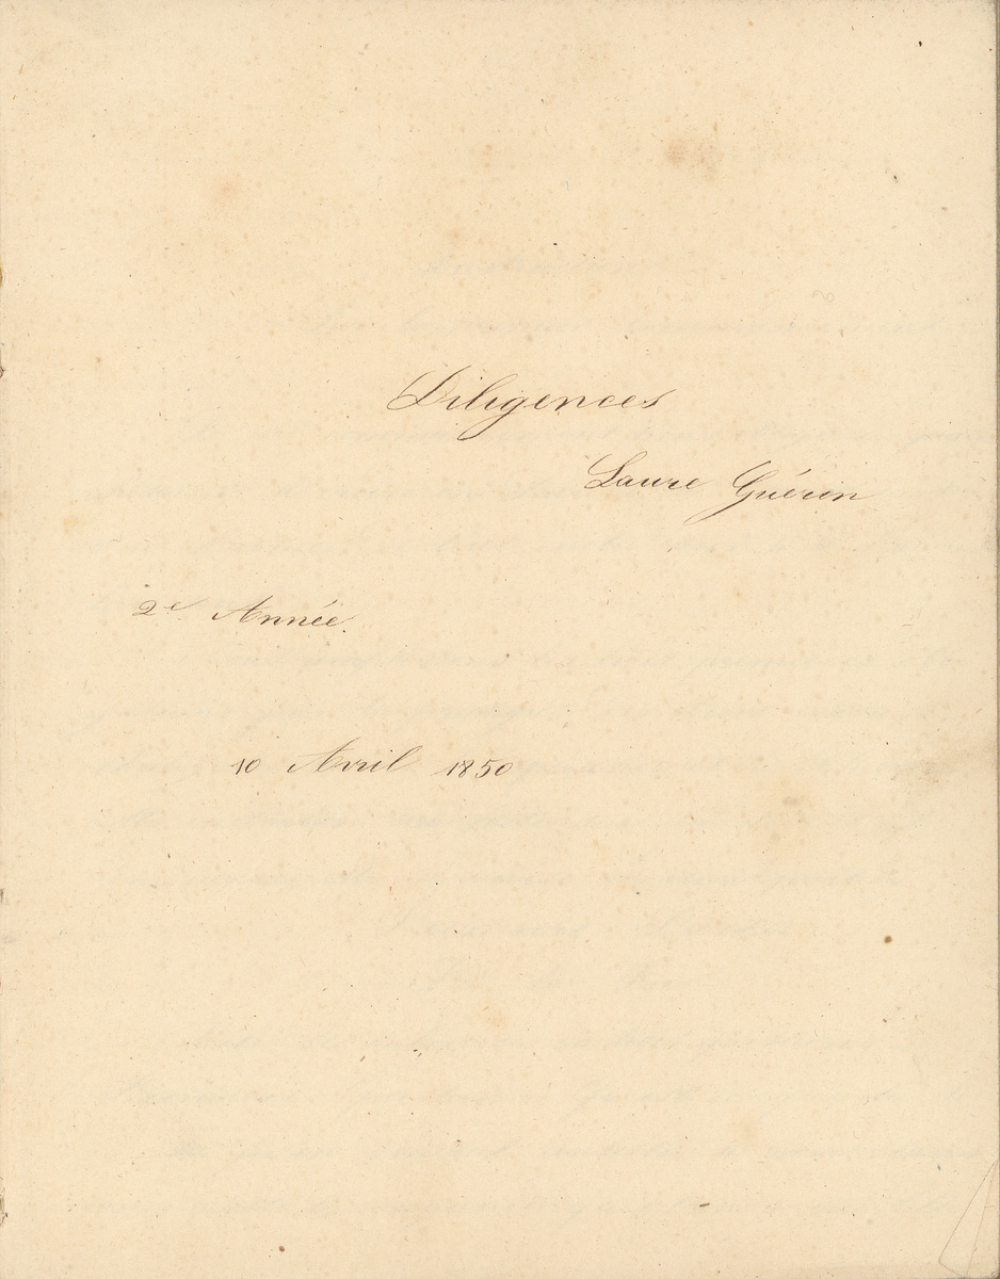 Diligences
Laure Guérin
2e Année.
10 Avril 1850